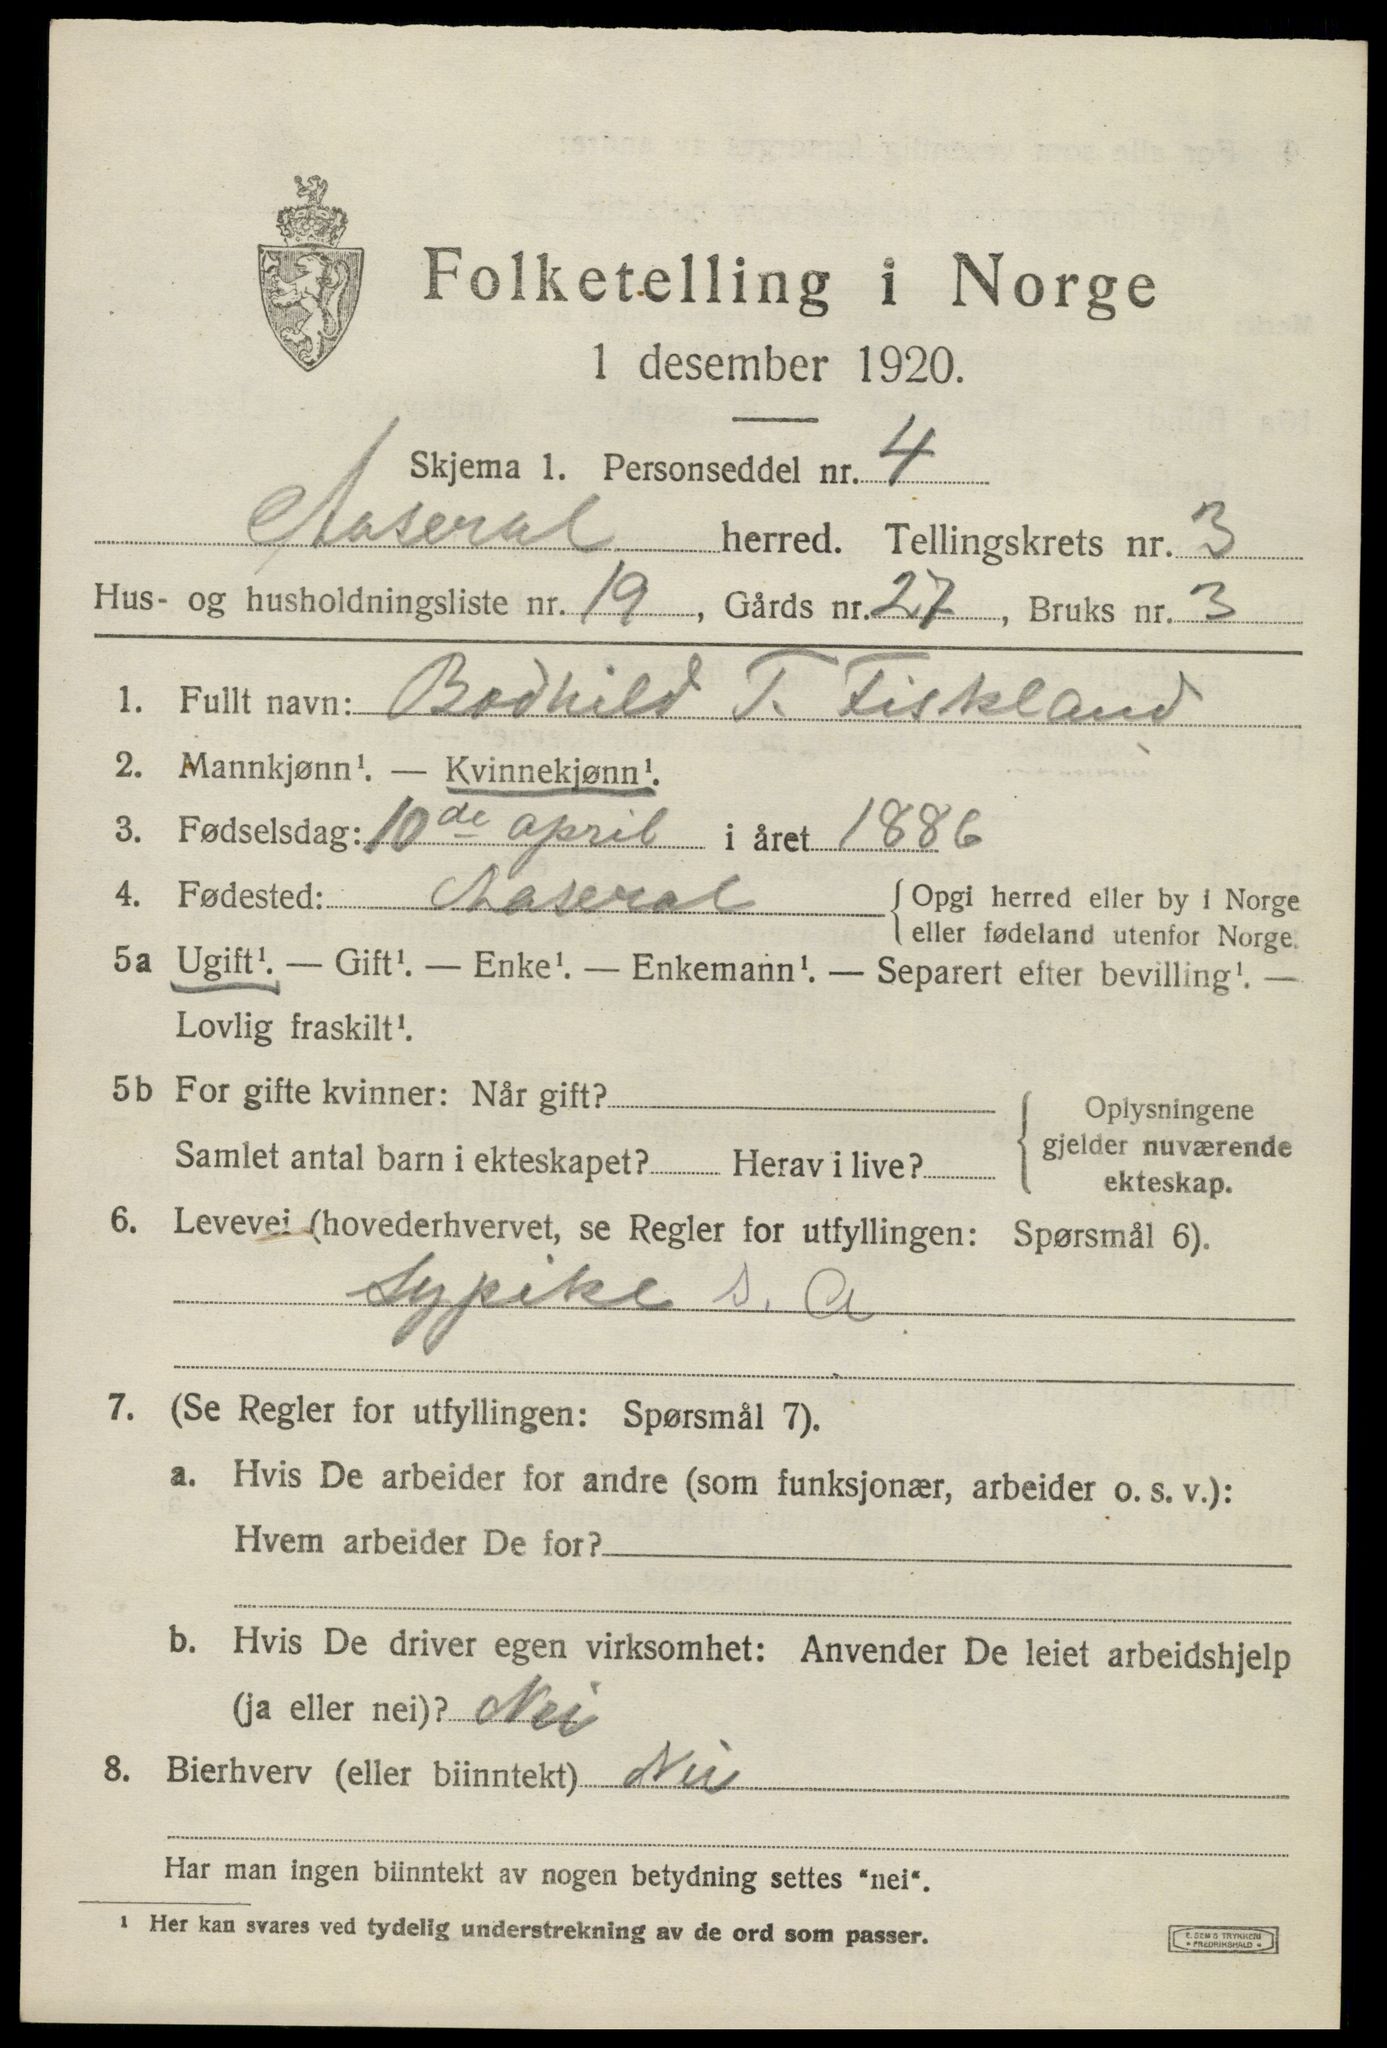 Folketelling i Norge
1 desember 1920.
Skjema 1. Personseddel nr. 4
Aaseral herred. Tellingskrets nr. 3
Hus- og husholdningsliste nr. 19, Gårds nr. 27, Bruks nr. 3
1. Fullt navn: Bodhild T. Fiskland
2. Mannkjønn¹. — Kvinnekjønn¹.
3. Fødselsdag: 10de april i året 1886
4. Fødested: Aaseral {Opgi herred eller by i Norge
eller fødeland utenfor Norge.
5a Ugift¹. — Gift¹. — Enke¹. — Enkemann¹. — Separert efter bevilling¹. —
Lovlig fraskilt¹.
5b For gifte kvinner: Når gift?
Samlet antal barn i ekteskapet? Herav i live?
{Oplysningene
gjelder nuværende
ekteskap.
6. Levevei (hovederhvervet, se Regler for utfyllingen: Spørsmål 6).
Sypike s. A
7. (Se Regler for utfyllingen: Spørsmål 7).
a. Hvis De arbeider for andre (som funksjonær, arbeider o. s. v.):
Hvem arbeider De for?
b. Hvis De driver egen virksomhet: Anvender De leiet arbeidshjelp
(ja eller nei)? Nei
8. Bierhverv (eller biinntekt) Nei
Har man ingen biinntekt av nogen betydning settes "nei".
¹ Her kan svares ved tydelig understrekning av de ord som passer.
E. SEM'S TRYKKERI
• FREDRIKSHALD •